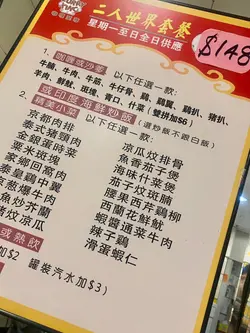 二人世界套餐
星期一至日全日供應
$148
1. 咖喱或沙嗲 以下任選一款:
牛腩、牛肉、牛筋、牛仔骨、雞、雞翼、雞扒、豬扒、
羊肉、鮮魷、斑塊、青口、什菜(雙拼加$6)
或印度海鮮炒飯(選炒飯不跟白飯)
2. 精美小菜 以下任選一款:
京都肉排
泰式豬頸肉
金銀蛋時菜
粟米斑塊
家鄉回窩肉
泰皇雞中翼
葱爆牛肉
魚炒芥蘭
炆涼瓜
涼瓜炆排骨
魚香茄子煲
海味什菜煲
茄子炆斑腩
腰果西芹雞柳
西蘭花鮮魷
蝦醬通菜牛肉
辣子雞
滑蛋蝦仁
或熱飲
加$2 罐裝汽水加$3)